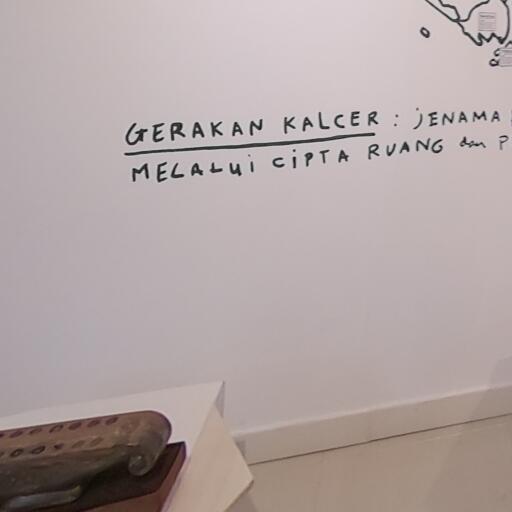 GERAKAN KALCER : JENAMA
MELALUi CiPTA RUANG dan P